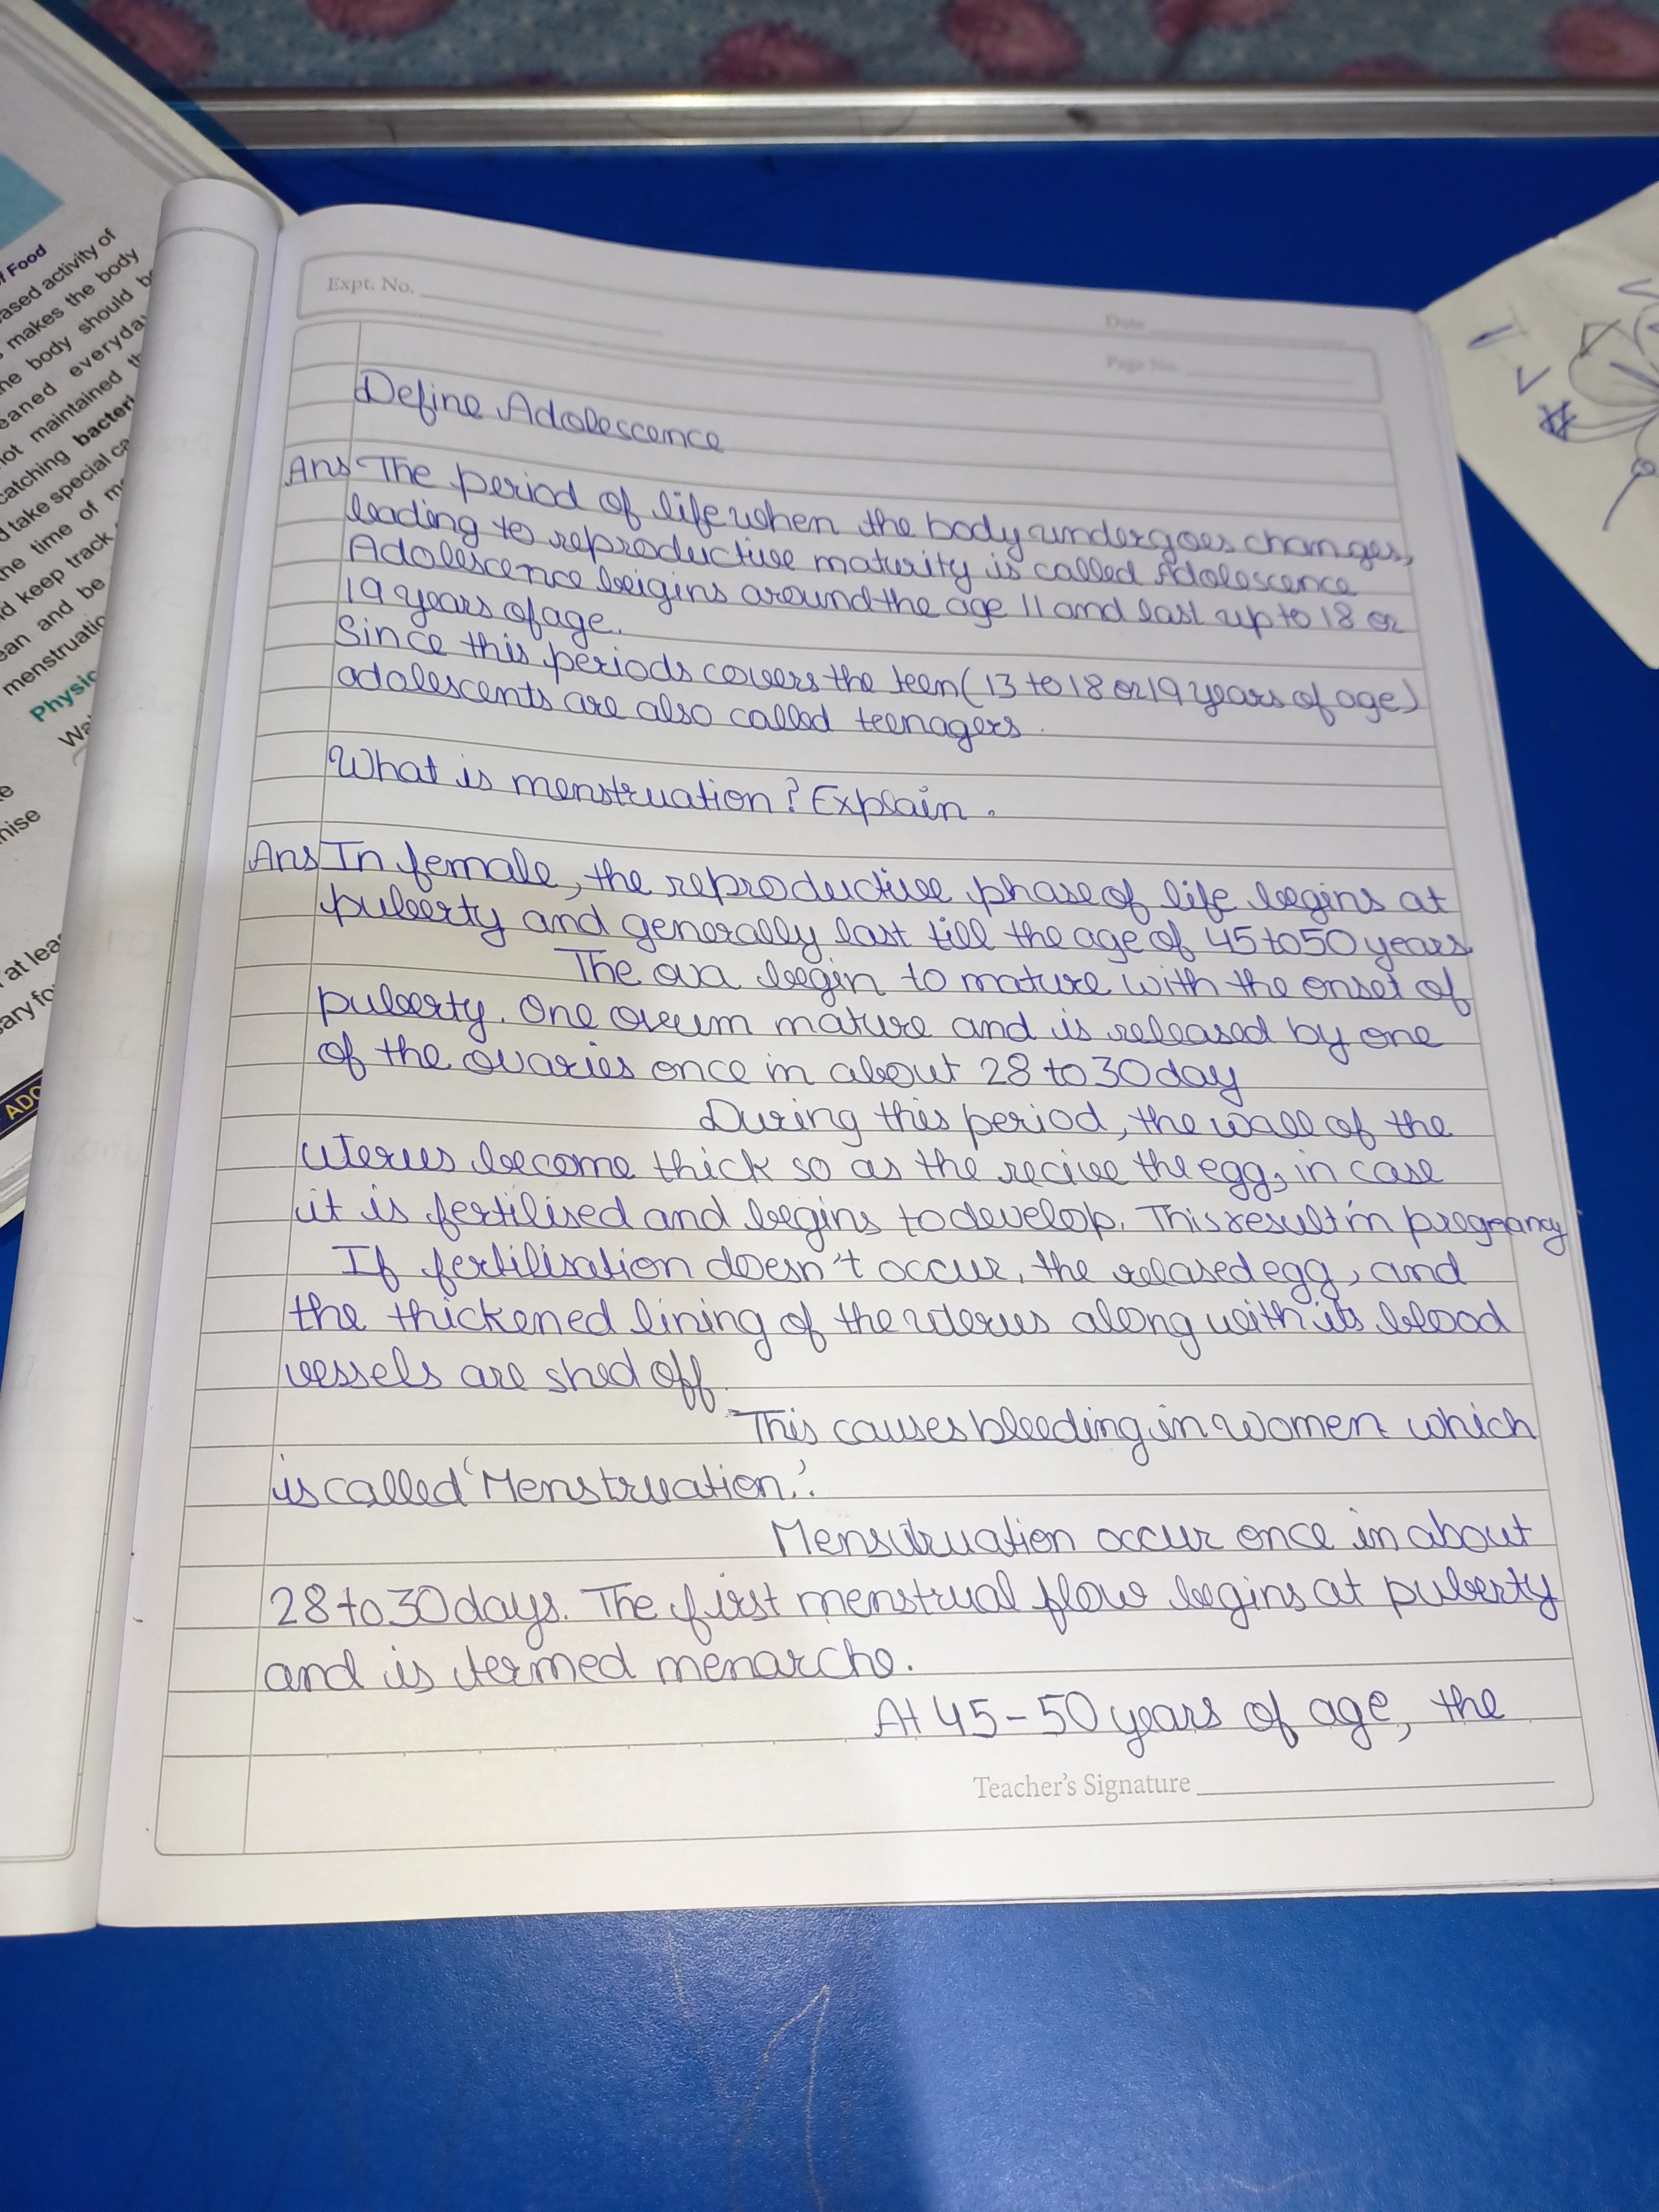 f Food
ased activity of
makes the body
he body should b
eaned everyday
not maintained th
catching bacteri
d take special ca
he time of m
d keep track
ean and be
menstruatio
Physic
Wa
e
nise
at leas
ary fo
ADO
Expt. No.
Date
Page No.
Define Adolescence
Ans The period of life when the body undergoes changes,
leading to reproductive maturity is called Adolescence
Adolescence beigins around the age 11 and last up to 18 or
19 years of age.
Since this periods covers the teen (13 to 18 or 19 years of age)
adolescents are also called teenagers.
What is menstruation? Explain.
Ans In female, the reproductive phase of life begins at
puberty and generally last till the age of 45 to 50 years.
The ova begin to mature with the onset of
puberty. One ovum mature and is released by one
of the ovaries once in about 28 to 30 day
During this period, the wall of the
uterus become thick so as the recive the egg, in case
it is fertilised and begins to develop. This result in pregnancy
If fertilisation doesn't occur, the relased egg, and
the thickened lining of the uterus along with its blood
vessels are shed off.
This causes bleeding in women which
is called 'Menstruation.'
Menstruation occur once in about
28 to 30 days. The first menstrual flow begins at puberty
and is termed menarche.
At 45-50 years of age, the
Teacher's Signature